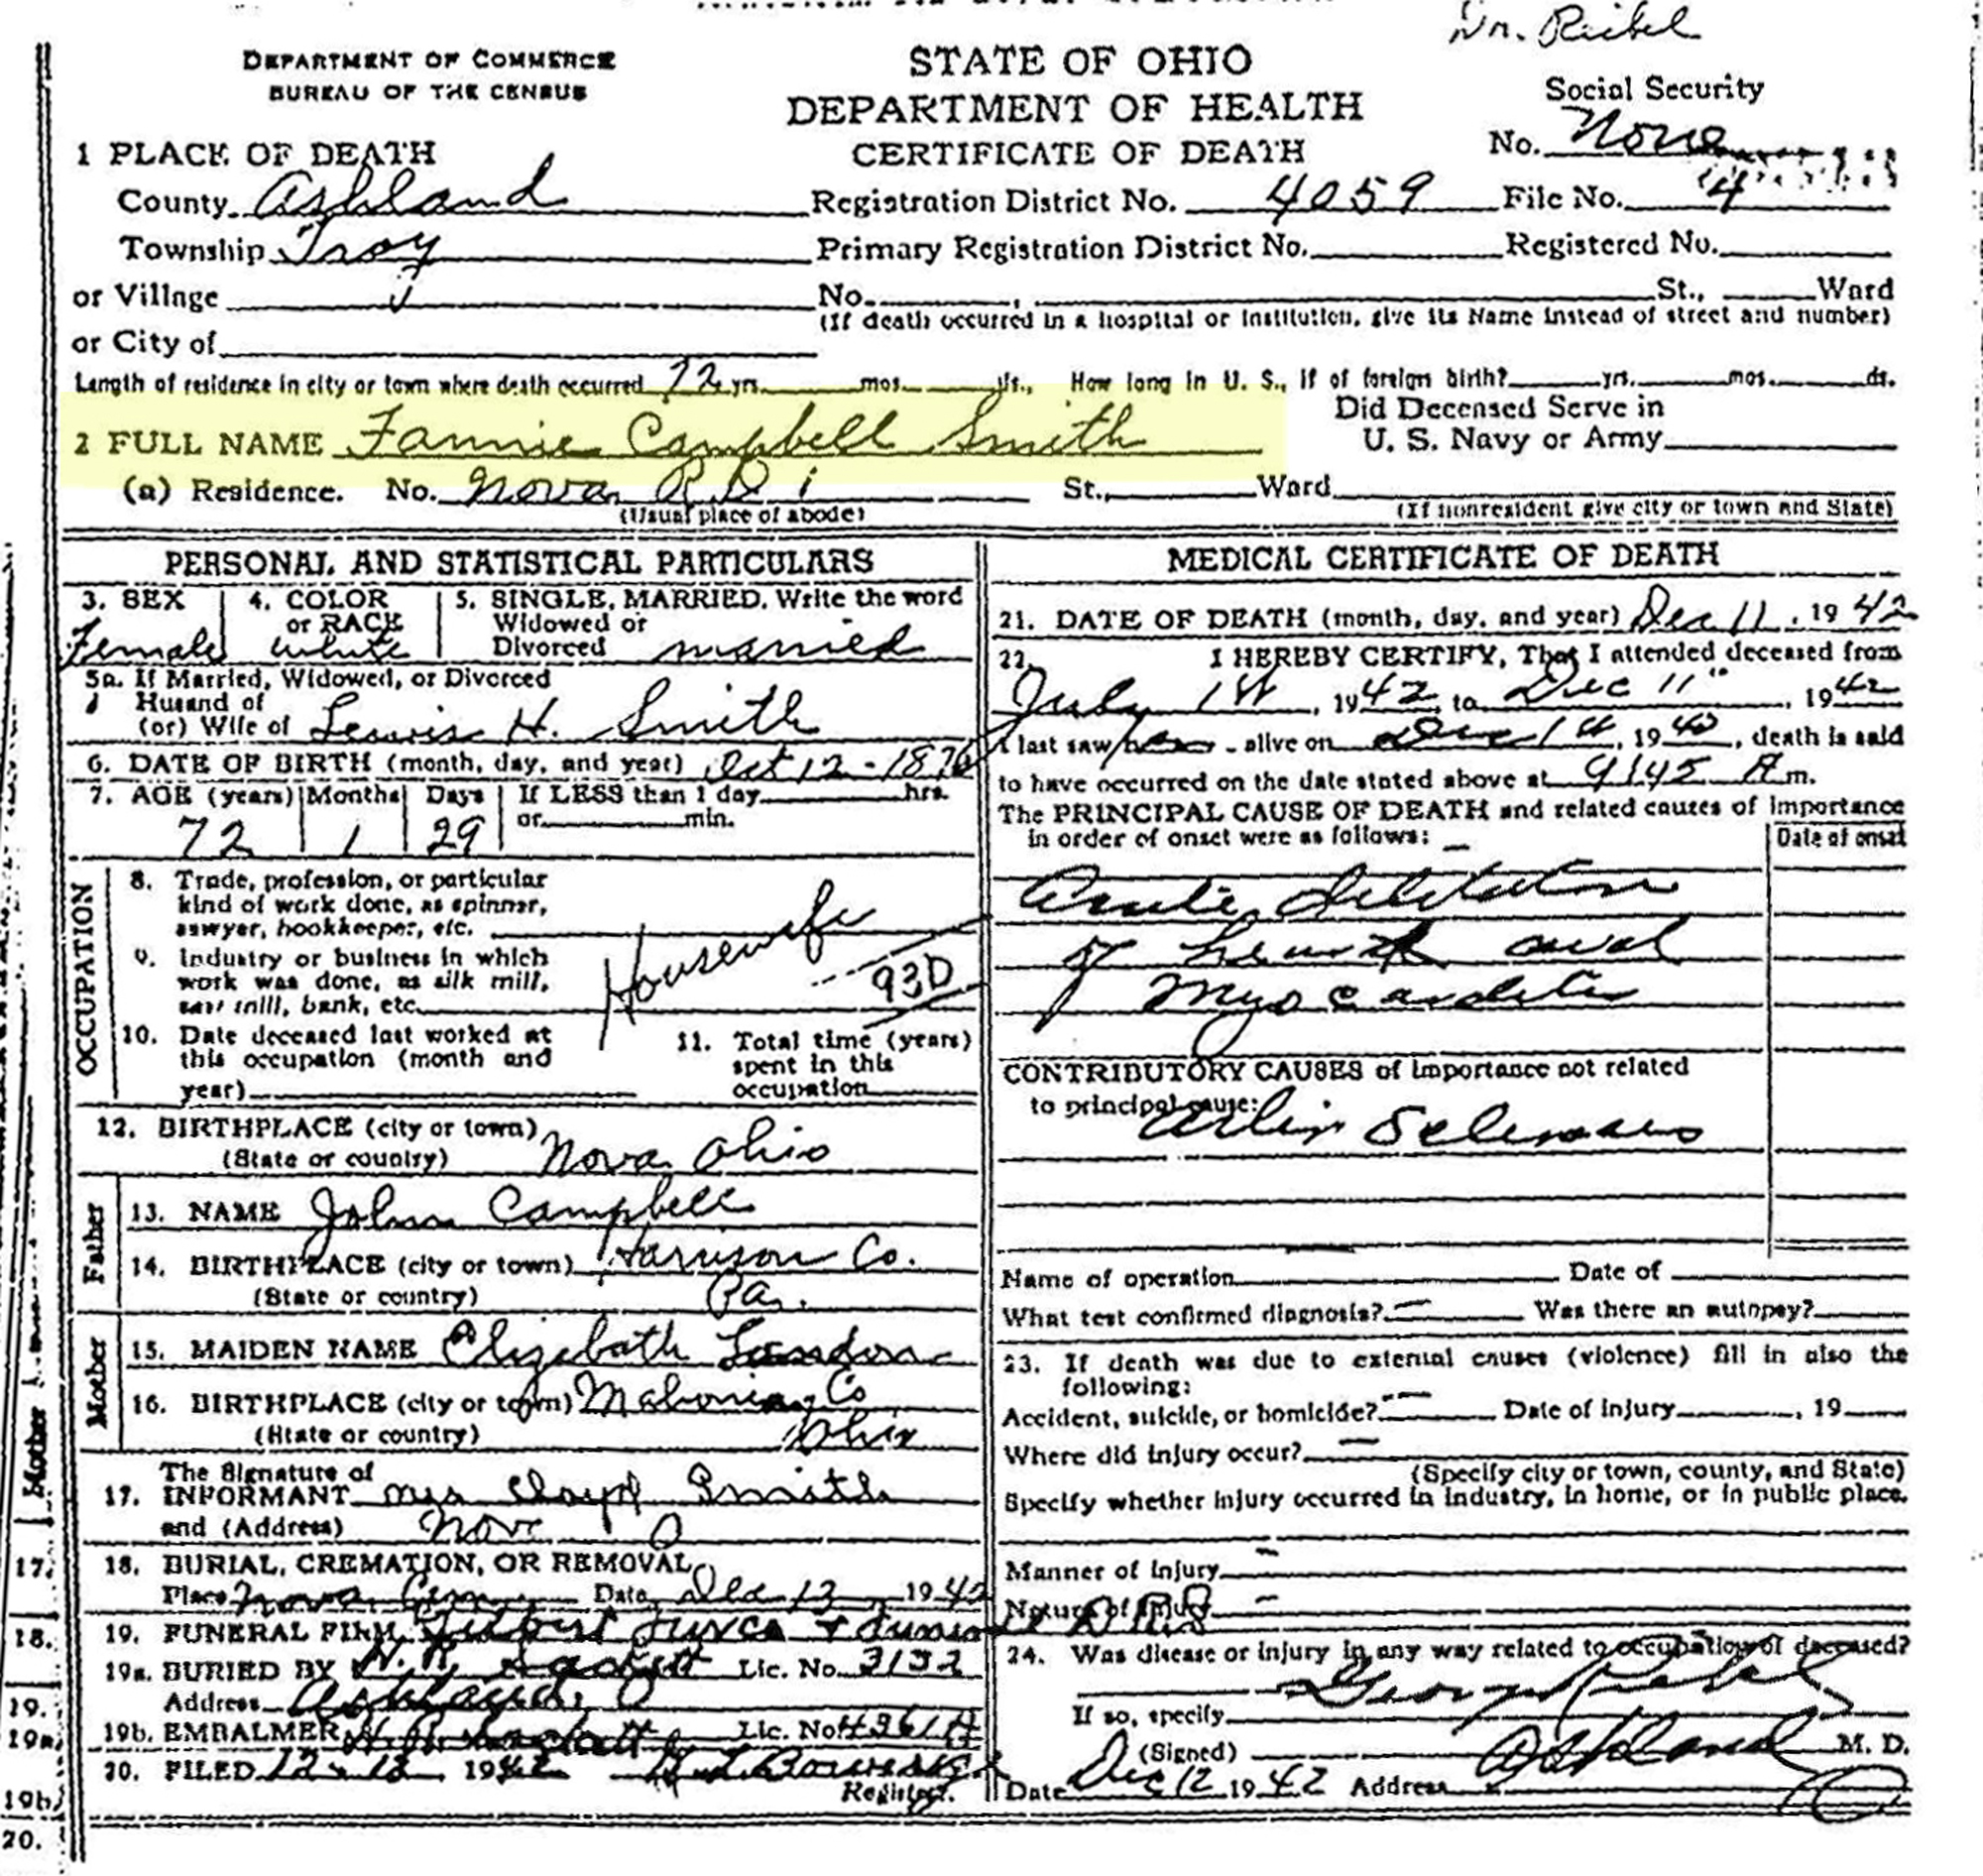 Dr. Riebel
DEPARTMENT OF COMMERCE
BUREAU OF THE CENSUS
STATE OF OHIO
DEPARTMENT OF HEALTH
CERTIFICATE OF DEATH
Social Security
No. None
1 PLACE OF DEATH
County Ashland Registration District No. 4059 File No. 4
Township Troy Primary Registration District No. Registered No.
or Village No. , St., Ward
(If death occurred in a hospital or institution, give its Name instead of street and number)
or City of
Length of residence in city or town where death occurred 72 yrs. mos. ds., How long in U. S., if of foreign birth? yrs. mos. ds.
2 FULL NAME Fannie Campbell Smith Did Deceased Serve in
U. S. Navy or Army
(a) Residence. No. Nova R D 1 St., Ward
(Usual place of abode) (If nonresident give city or town and State)
PERSONAL AND STATISTICAL PARTICULARS
3. SEX 4. COLOR or RACE 5. SINGLE, MARRIED, Write the word
Widowed or
Female white Divorced married
5a. If Married, Widowed, or Divorced
Husand of
(or) Wife of Lewis H. Smith
6. DATE OF BIRTH (month, day, and year) Oct 12 - 1870
7. AGE (years) Months Days If LESS than 1 day hrs.
or min.
72 1 29
OCCUPATION
8. Trade, profession, or particular
kind of work done, as spinner,
sawyer, bookkeeper, etc.
Housewife
9. Industry or business in which
work was done, as silk mill,
saw mill, bank, etc.
93D
10. Date deceased last worked at
this occupation (month and
year)
11. Total time (years)
spent in this
occupation
12. BIRTHPLACE (city or town)
(State or country) Nova Ohio
Father
13. NAME John Campbell
14. BIRTHPLACE (city or town) Harrison Co.
(State or country) Pa.
Mother
15. MAIDEN NAME Elizabath
16. BIRTHPLACE (city or town) Mahoning Co
(State or country) Ohio
The Signature of
17. INFORMANT Mrs Cloyd Smith
and (Address) Nova O
18. BURIAL, CREMATION, OR REMOVAL
Place Nova Cem Date Dec 13 1942
19. FUNERAL FIRM
19a. BURIED BY H. R. Lic. No. 3132
Address Ashland, O
19b. EMBALMER H. R. Lic. No. 4361A
20. FILED 12-12 1942
Registrar.
MEDICAL CERTIFICATE OF DEATH
21. DATE OF DEATH (month, day, and year) Dec 11, 1942
22. I HEREBY CERTIFY, That I attended deceased from
July 1st, 1942, to Dec 11", 1942
I last saw her alive on Dec 1st, 1940, death is said
to have occurred on the date stated above at 9:45 A m.
The PRINCIPAL CAUSE OF DEATH and related causes of importance
in order of onset were as follows:
Date of onset
Acute Dilitation
of heart and
Myocarditis
CONTRIBUTORY CAUSES of importance not related
to principal cause:
Name of operation Date of
What test confirmed diagnosis? Was there an autopsy?
23. If death was due to external causes (violence) fill in also the
following:
Accident, suicide, or homicide? Date of injury , 19
Where did injury occur?
(Specify city or town, county, and State)
Specify whether injury occurred in industry, in home, or in public place.
Manner of injury
Nature of injury
24. Was disease or injury in any way related to occupation of deceased?
If so, specify
George Riebel
(Signed) M. D.
Ashland
Date Dec 12 1942 Address O
Mother
17.
18.
19.
19a.
19b.
20.